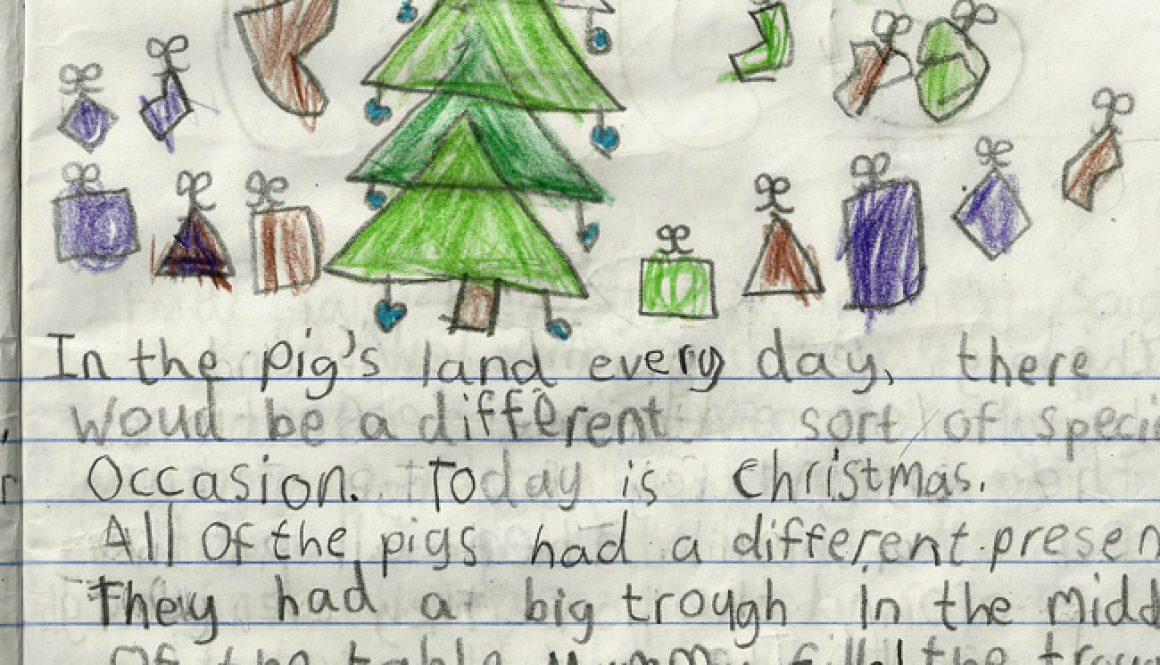 In the pig's land every day, there
woud be a different sort of speci
Occasion. Today is Christmas.
All Of the pigs had a different presen
They had a big trough In the midd
Of the table